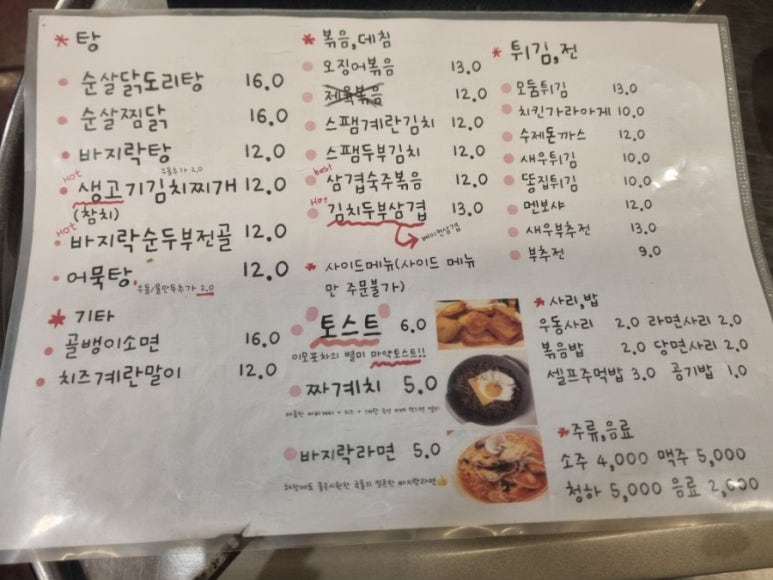 * 탕
순살닭도리탕 16.0
순살찜닭 16.0
바지락탕 12.0
우동추가 2.0
Hot
생고기김치찌개 12.0
(참치)
Hot
바지락순두부전골 12.0
어묵탕 12.0
우동/물만두추가 2.0
* 기타
골뱅이소면 16.0
치즈계란말이 12.0
* 볶음,데침
오징어볶음 13.0
제육볶음 12.0
스팸계란김치 12.0
스팸두부김치 12.0
best
삼겹숙주볶음 12.0
Hot
김치두부삼겹 13.0
베이컨삼겹
* 사이드메뉴(사이드 메뉴
만 주문불가)
토스트 6.0
이모포차의 별미 마약토스트!!
짜계치 5.0
바지락라면 5.0
* 튀김,전
모둠튀김 13.0
치킨가라아게 10.0
수제돈까스 12.0
새우튀김 10.0
똥집튀김 10.0
멘보샤 12.0
새우부추전 13.0
부추전 9.0
* 사리,밥
우동사리 2.0 라면사리 2.0
볶음밥 2.0 당면사리 2.0
셀프주먹밥 3.0 공기밥 1.0
* 주류,음료
소주 4,000 맥주 5,000
청하 5,000 음료 2,000